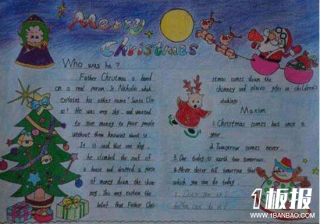 Merry
Christmas
Who was he?
Father Christmas is based
on a real person, St. Nicholas, which
explains his other name "Santa Claus
He was very shy and wanted
to give money to poor people
without them knowing about it.
It is said that one day,
he climbed the roof of
a house and dropped a purse
of money down the chimney
This was maybe the
belief that Father Chri
stmas comes down the
chimney and places gifts in children's
stockings
Maxim
1. Christmas comes but once a
year.
2. Tomorrow never
3. One today is worth two tomorrow.
4. Never leave till tomorrow that
which you can do today
1板报
WWW.1BANBAO.COM